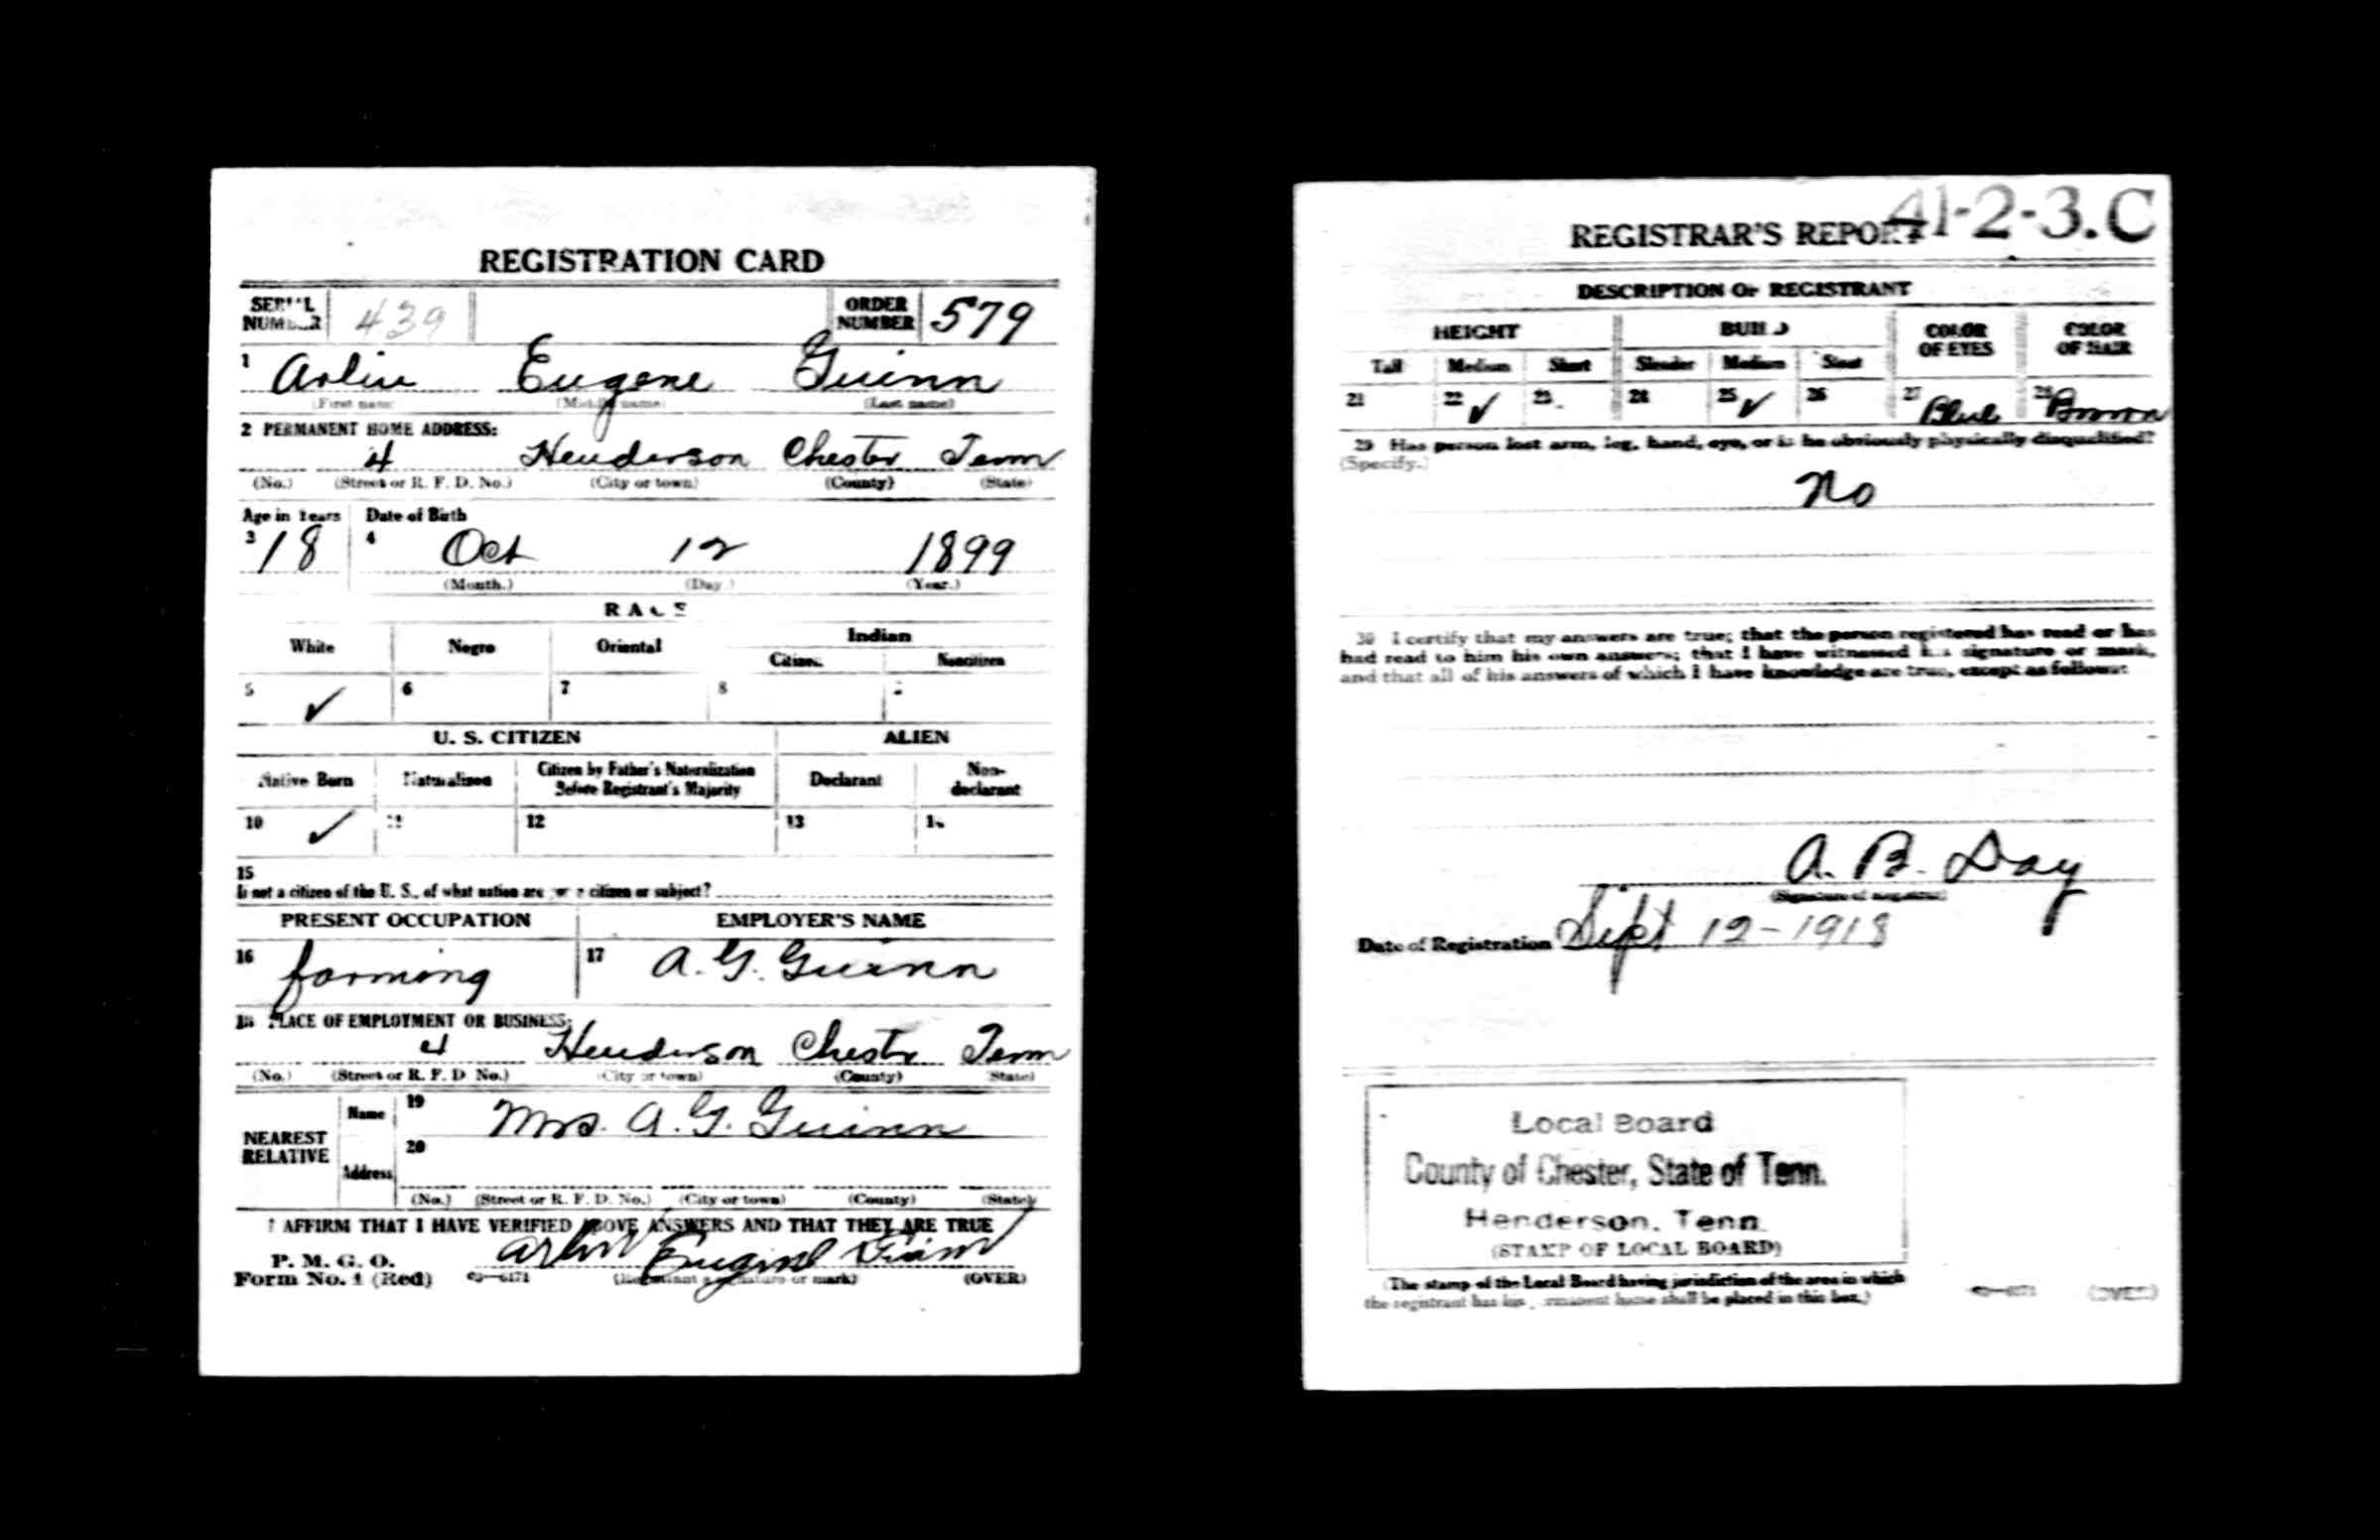 REGISTRATION CARD
SERIAL NUMBER 439 ORDER NUMBER 579
1 Arlin Eugene Guinn
(First name) (Middle name) (Last name)
2 PERMANENT HOME ADDRESS:
4 Henderson Chester Tenn
(No.) (Street or R. F. D. No.) (City or town) (County) (State)
Age in Years Date of Birth
3 18 4 Oct 12 1899
(Month.) (Day.) (Year.)
RACE
White Negro Oriental Indian
Citizen Noncitizen
5 ✓ 6 7 8
U. S. CITIZEN ALIEN
Native Born Naturalized Citizen by Father's Naturalization Before Registrant's Majority Declarant Non-declarant
10 ✓ 11 12 13 14
15
If not a citizen of the U. S., of what nation are you a citizen or subject?
PRESENT OCCUPATION EMPLOYER'S NAME
16 farming 17 A. G. Guinn
18 PLACE OF EMPLOYMENT OR BUSINESS:
4 Henderson Chester Tenn
(No.) (Street or R. F. D. No.) (City or town) (County) (State)
NEAREST RELATIVE Name 19 Mrs. A. G. Guinn
Address 20
(No.) (Street or R. F. D. No.) (City or town) (County) (State)
I AFFIRM THAT I HAVE VERIFIED ABOVE ANSWERS AND THAT THEY ARE TRUE
P. M. G. O.
Form No. 1 (Red) 03—6171 Arlin Eugene Guinn
(Registrant's signature or mark) (OVER)
REGISTRAR'S REPORT 41-2-3. C
DESCRIPTION OF REGISTRANT
HEIGHT BUILD COLOR OF EYES COLOR OF HAIR
Tall Medium Short Slender Medium Stout
21 22 ✓ 23 24 25 ✓ 26 27 Blue 28 Brown
29 Has person lost arm, leg, hand, eye, or is he obviously physically disqualified?
(Specify.)
No
30 I certify that my answers are true; that the person registered has read or has
had read to him his own answers; that I have witnessed his signature or mark,
and that all of his answers of which I have knowledge are true, except as follows:
A. B. Day
(Signature of registrar)
Date of Registration Sept 12-1918
Local Board
County of Chester, State of Tenn.
Henderson, Tenn.
(STAMP OF LOCAL BOARD)
(The stamp of the Local Board having jurisdiction of the area in which
the registrant has his permanent home shall be placed in this box.)
03—6171 (OVER)